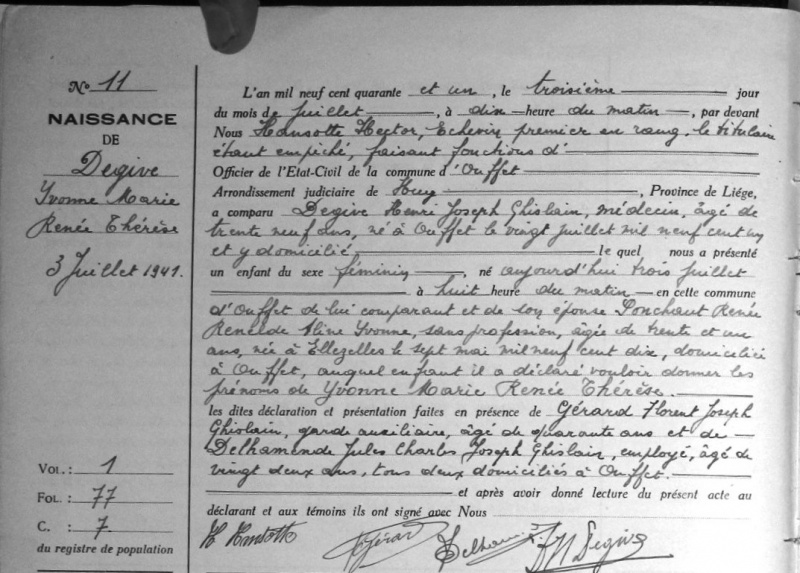 No 11
NAISSANCE
DE
Degive
Yvonne Marie
Renée Thérèse
3 Juillet 1941.
Vol.: 1
Fol.: 77
C. : 7
du registre de population
L'an mil neuf cent quarante et un, le troisième jour
du mois de Juillet, à dix heure du matin, par devant
Nous Hansotte Hector, Echevin premier en rang, le titulaire
étant empêché, faisant fonctions d'
Officier de l'Etat-Civil de la commune d'Ouffet
Arrondissement judiciaire de Huy, Province de Liége,
a comparu Degive Henri Joseph Ghislain, médecin, âgé de
trente neuf ans, né à Ouffet le vingt juillet mil neuf cent un
et y domicilié le quel nous a présenté
un enfant du sexe féminin, né aujourd'hui trois Juillet
à huit heure du matin en cette commune
d'Ouffet de lui comparant et de son épouse Ponchaut Renée
Renelde Aline Yvonne, sans profession, âgée de trente et un
ans, née à Ellezelles le sept mai mil neuf cent dix, domiciliée
à Ouffet, auquel enfant il a déclaré vouloir donner les
prénoms de Yvonne Marie Renée Thérèse.
les dites déclaration et présentation faites en présence de Gérard Florent Joseph
Ghislain, garde auxiliaire, âgé de quarante ans et de
Delhamende Jules Charles Joseph Ghislain, employé, âgé de
vingt deux ans, tous deux domiciliés à Ouffet.
et après avoir donné lecture du présent acte au
déclarant et aux témoins ils ont signé avec Nous
H Hansotte Gérard Degive